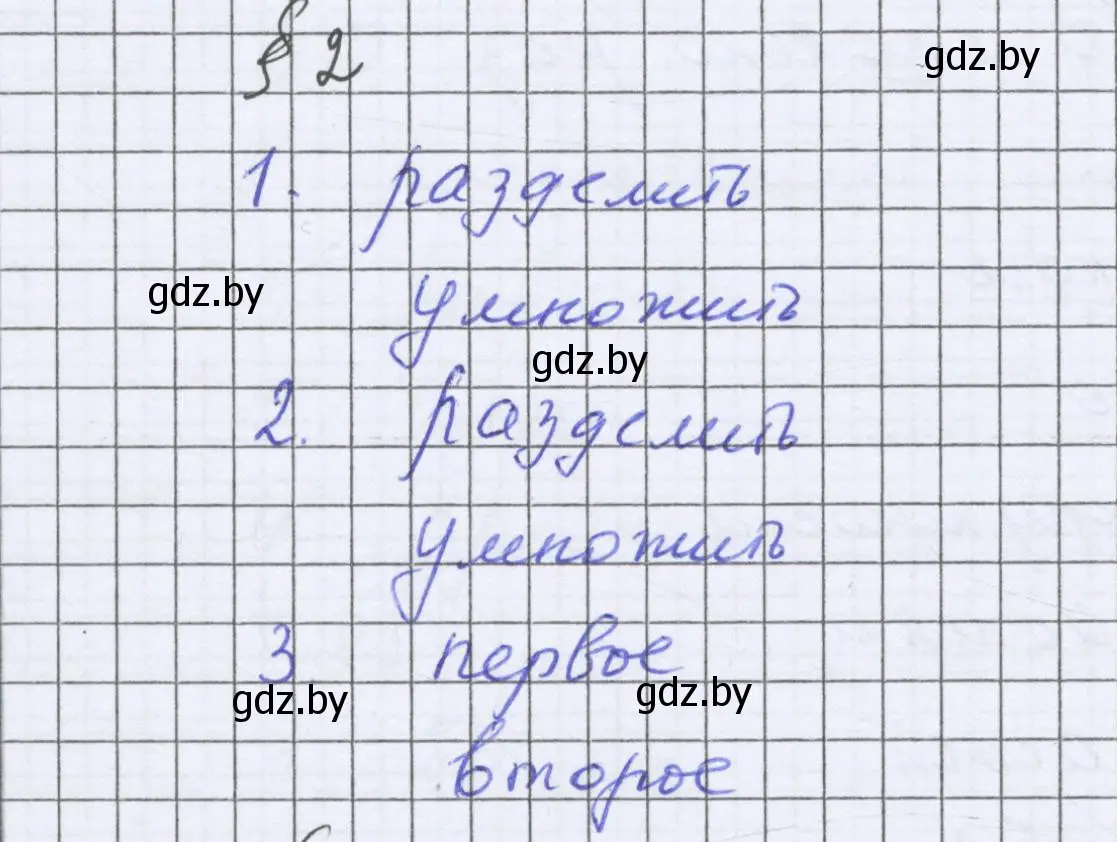 § 2
gdz.by
1. разделить
gdz.by
умножить
gdz.by
2. разделить
умножить
3 первое
gdz.by
gdz.by
второе